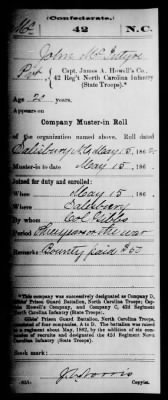 (Confederate.)
Mc 42 N.C.
John McIntyre
Pvt, Capt. James A. Howell's Co.,
42 Reg't North Carolina Infantry
(State Troops).*
Age 2 years.
Appears on
Company Muster-in Roll
of the organization named above. Roll dated
Salisbury N.C., May 15, 186
Muster-in to date May 15, 186
Joined for duty and enrolled:
When May 15, 186
Where Salisbury
By whom Col Gibbs
Period the war
Remarks: County paid $50
*This company was successively designated as Company D,
Gibbs' Prison Guard Battalion, North Carolina Troops; Cap-
tain Howell's Company, and Company C, 42d Regiment
North Carolina Infantry (State Troops).
Gibbs' Prison Guard Battalion, North Carolina Troops,
consisted of four companies, A to D. The battalion was raised
to a regiment about May, 1862, by the addition of six com-
panies of recruits and designated the 42d Regiment North
Carolina Infantry (State Troops).
Book mark:
Copyist.